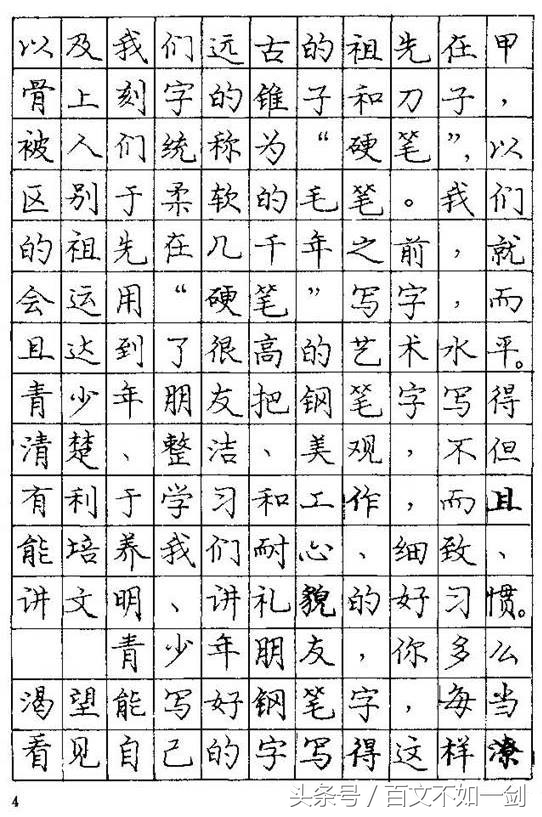 以及我们远古的祖先在甲
骨上刻字的锥子和刀子，
被人们统称为“硬笔”，以
区别于柔软的毛笔。我们
的祖先在几千年之前，就
会运用“硬笔”写字，而
且达到了很高的艺术水平。
青少年朋友把钢笔字写得
清楚、整洁、美观，不但
有利于学习和工作，而且
能培养我们耐心、细致、
讲文明、讲礼貌的好习惯。
青少年朋友，你多么
渴望能写好钢笔字，每当
看见自己的字写得这样潦
4
头条号/百文不如一剑